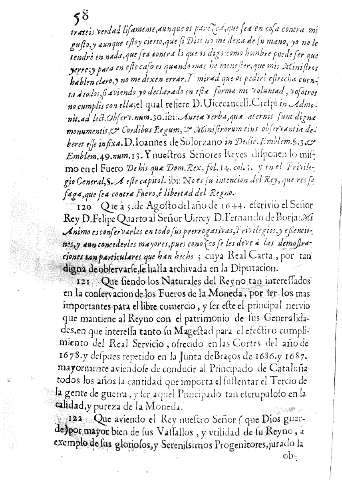 58
trateis verdad lisamente, aunque os parezca, que sea en cosa contra mi
gusto, y aunque estoy cierto, que si Dios no me dexa de su mano, yo no le
tendrè en nada, que sea contra lo que os digo como hombre puede ser que
yerre; y para en este caso es quando mas he menester, que mis Ministros
hablen claro, y no me dexen errar. Y mirad que os pedirè estrecha cuen-
ta à todos, si aviendo yo declarado en esta forma mi voluntad, vosotros
no cumplis con ella, el qual refiere D. Vicecancell. Crespi in Admo-
nit. ad lect. Observ. num. 30. ibi: Aurea verba, quæ æternis sunt digna
monumentis, & Cordibus Regum, & Ministrorum eius observantia de-
beret esse infixa. D. Ioannes de Solorzano in Dedic. Emblem. §. 3. &
Emblem. 49. num. 13. Y nuestros Señores Reyes disponen lo mis-
mo en el Fuero De his quæ Dom. Rex, fol. 14. col. 1. y en el Privile-
gio General, §. A este capitol. ibi: No es su intencion del Rey, que res se
faga, que sea contra Fuero, è libertad del Regno.
120 Que à 5. de Agosto del año de 1644. escriviò el Señor
Rey D. Felipe Quarto al Señor Virrey D. Fernando de Borja: Mi
Animo es conservarles en todos sus prerrogativas, Privilegios, y essencio-
nes, y aun concederles mayores, pues conozco se les deve à las demostra-
ciones tan particulares que han hecho; cuya Real Carta, por tan
digna de observarse, se halla archivada en la Diputacion.
121 Que siendo los Naturales del Reyno tan interessados
en la conservacion de los Fueros de la Moneda, por ser los mas
importantes para el libre comercio, y ser este el principal nervio
que mantiene al Reyno con el patrimonio de sus Generalida-
des, en que interessa tanto su Magestad para el efectivo cumpli-
miento del Real Servicio, ofrecido en las Cortes del año de
1678. y despues repetido en la Junta de Braços de 1686. y 1687.
mayormente aviendose de conducir al Principado de Cataluña
todos los años la cantidad que importa el sustentar el Tercio de
la gente de guerra, y ser aquel Principado tan escrupuloso en la
calidad, y pureza de la Moneda.
122 Que aviendo el Rey nuestro Señor (que Dios guar-
de) por mayor bien de sus Vassallos, y vtilidad de su Reyno, a
exemplo de sus gloriosos, y Serenissimos Progenitores, jurado la
ob-